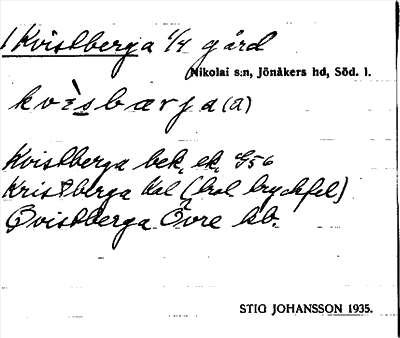 1 Kvistberga 1/4 gård
Nikolai s:n, Jönåkers hd, Söd. l.
kvìsbærja (a)
Kvistberga bek. ek. G56
Kristberga Kal (trol tryckfel)
Qvistberga Öfre kb.
STIG JOHANSSON 1935.